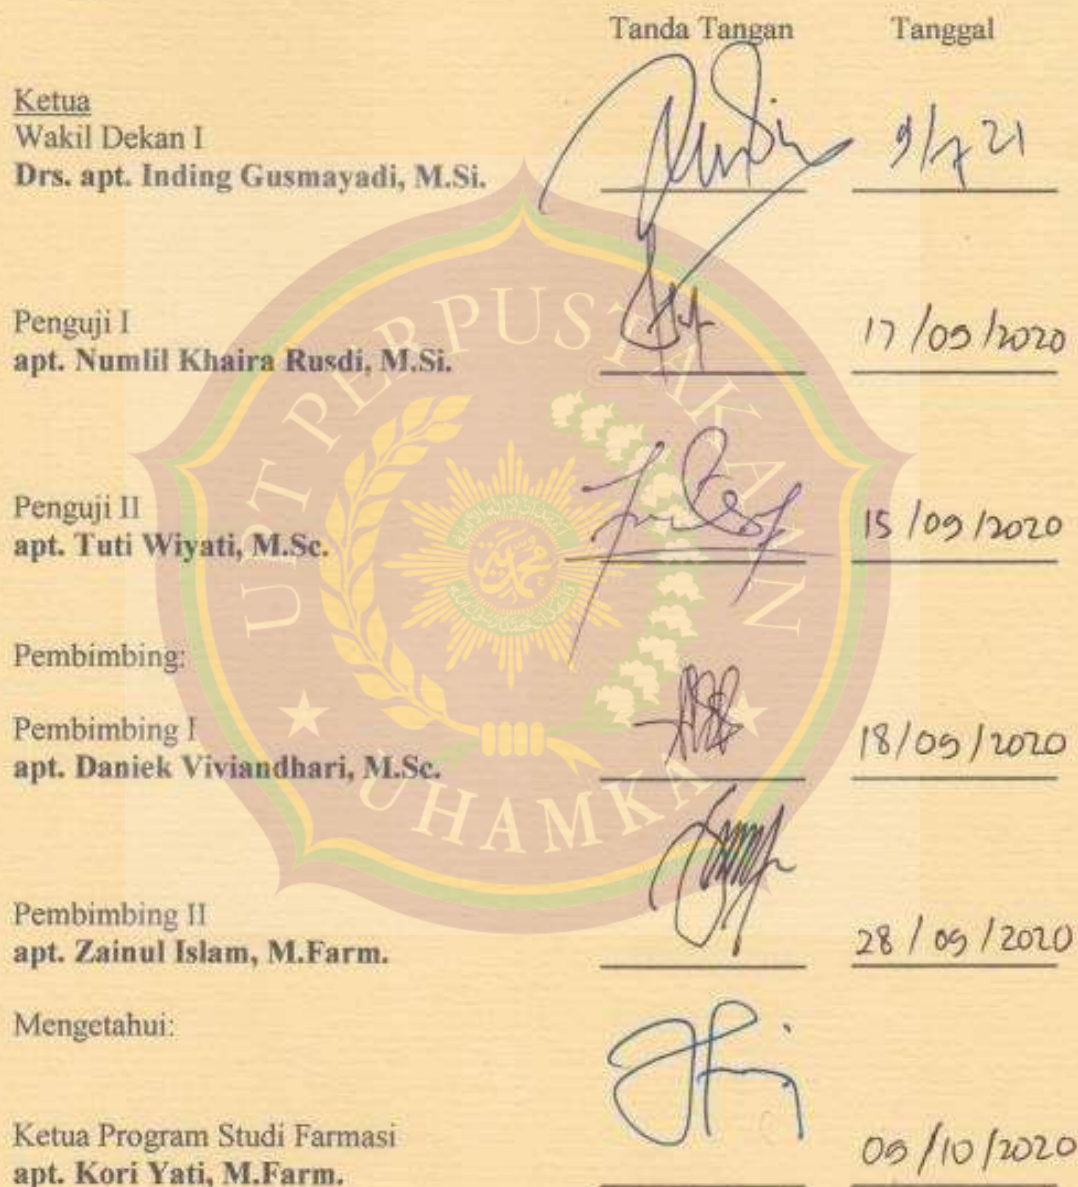 Tanda Tangan Tanggal
Ketua
Wakil Dekan I
Drs. apt. Inding Gusmayadi, M.Si. 9/7 21
Penguji I
apt. Numlil Khaira Rusdi, M.Si. 17/09/2020
Penguji II
apt. Tuti Wiyati, M.Sc. 15/09/2020
Pembimbing:
Pembimbing I
apt. Daniek Viviandhari, M.Sc. 18/09/2020
Pembimbing II
apt. Zainul Islam, M.Farm. 28/09/2020
Mengetahui:
Ketua Program Studi Farmasi
apt. Kori Yati, M.Farm. 09/10/2020
UPT PERPUSTAKAAN
UHAMKA